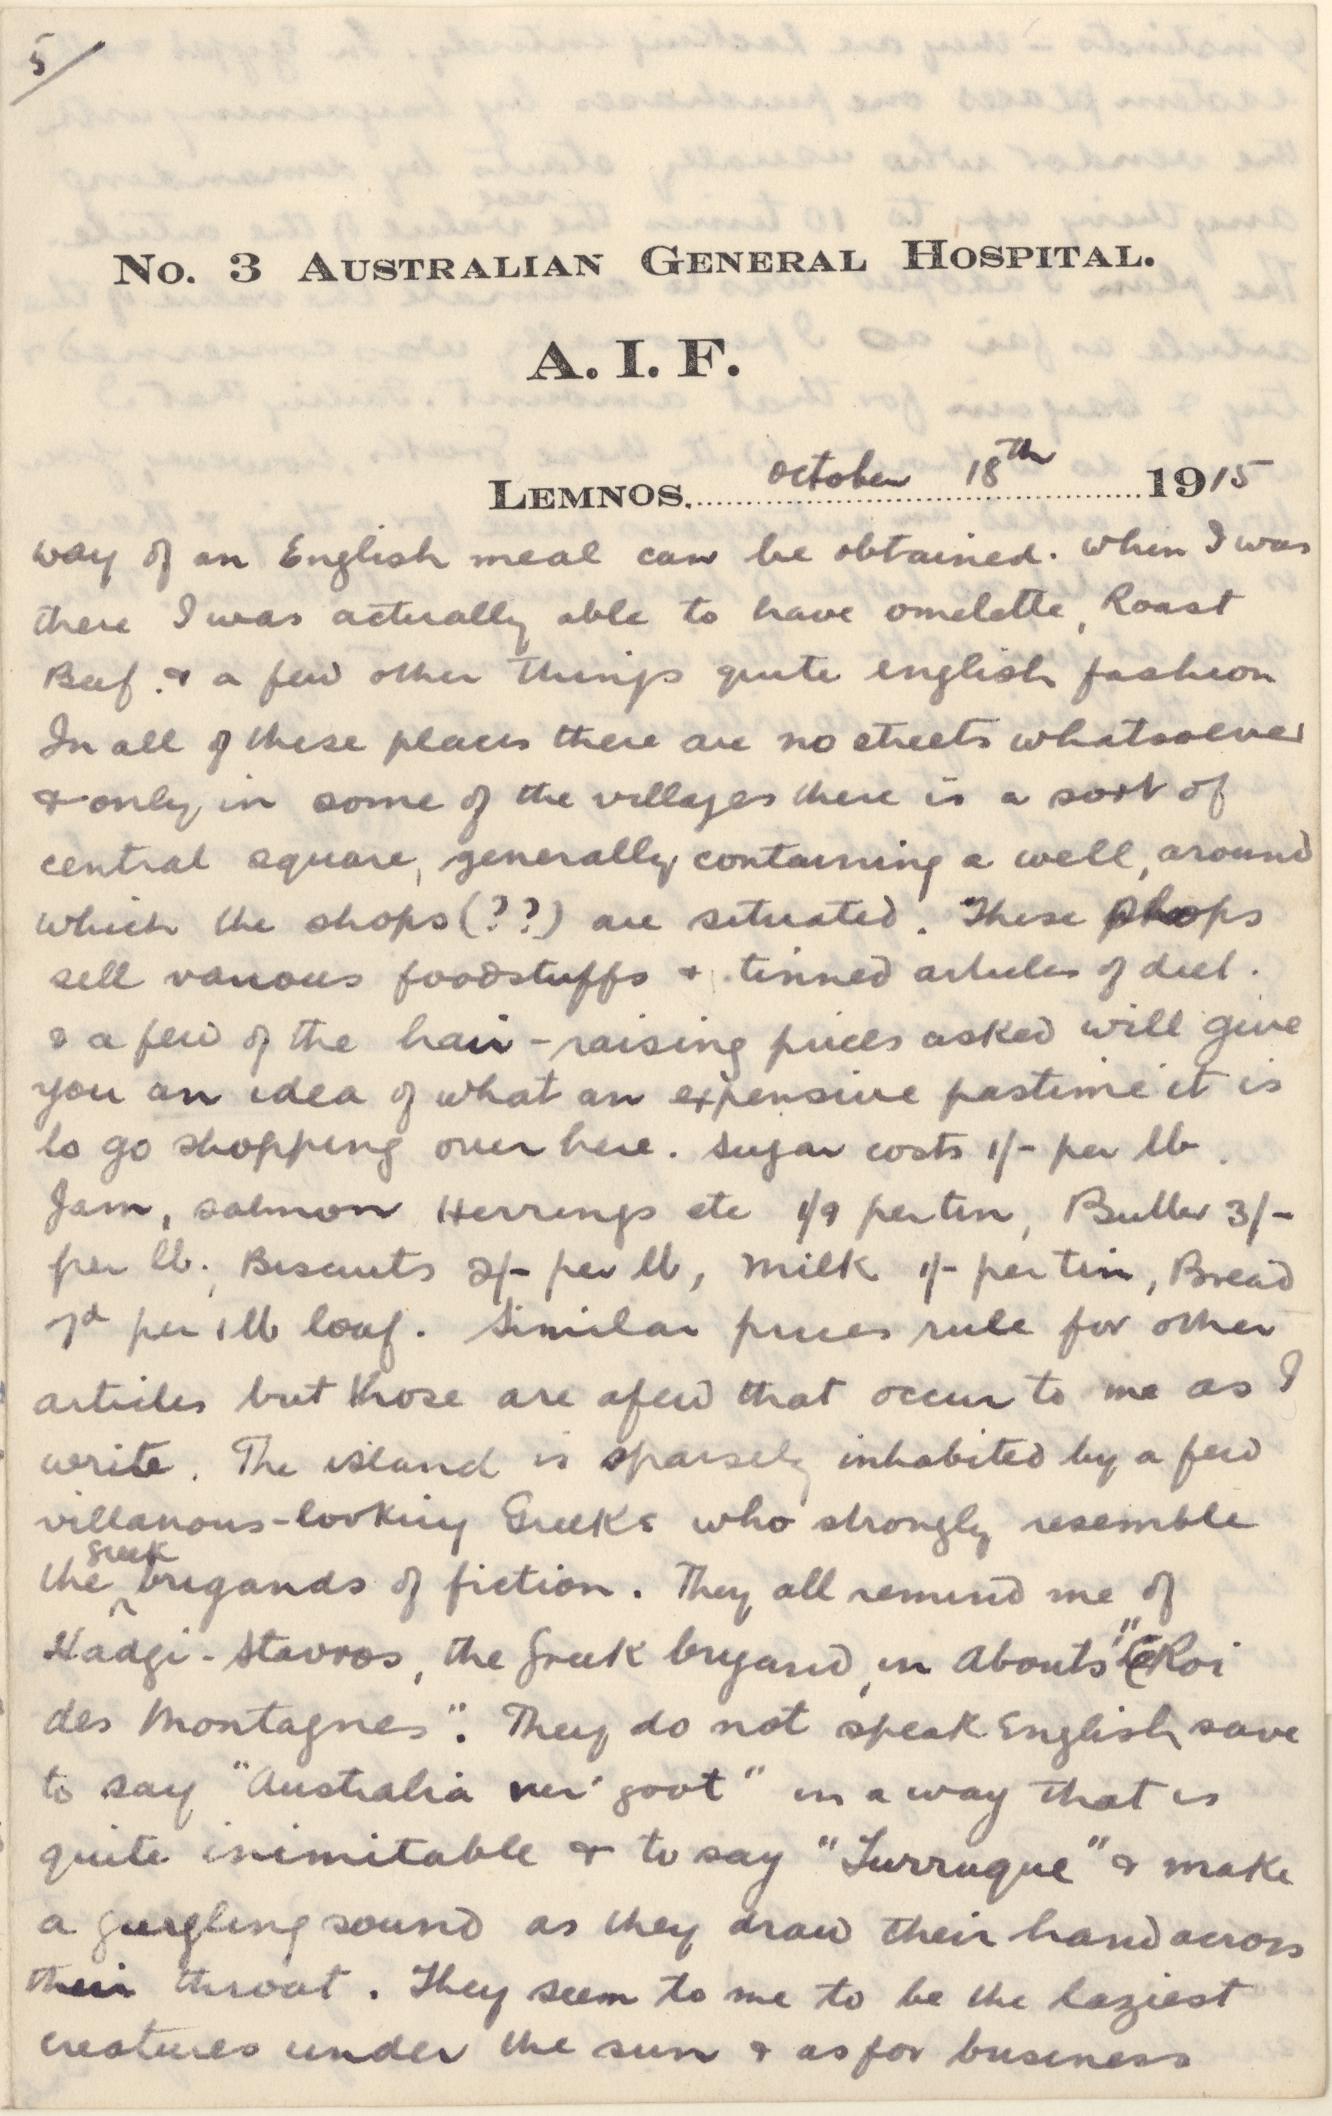 5/
No. 3 Australian General Hospital.
A. I. F.
Lemnos. October 18th 1915
way of an English meal can be obtained. When I was
there I was actually able to have omelette, Roast
Beef. & a few other things quite english fashion
In all of these places there are no streets whatsoever
& only in some of the villages there is a sort of
central square, generally containing a well, around
which the shops (??) are situated. These shops
sell various foodstuffs & tinned articles of diet.
& a few of the hair-raising prices asked will give
you an idea of what an expensive pastime it is
to go shopping over here. Sugar costs 1/- per lb.
Jam, salmon Herrings etc 1/9 per tin, Butter 3/-
per lb., Biscuits 2/- per lb, Milk 1/- per tin, Bread
7d per 1 lb loaf. Similar prices rule for other
articles but those are a few that occur to me as I
write. The island is sparsely inhabited by a few
villanous-looking Greeks who strongly resemble
the greek brigands of fiction. They all remind me of
Hadgi-Stavros, the Greek brigand, in Abouts "Le Roi
des Montagnes". They do not speak English save
to say "Australia ver' goot" in a way that is
quite inimitable & to say "Turruque" & make
a gurgling sound as they draw their hand across
their throat. They seem to me to be the laziest
creatures under the sun & as for business